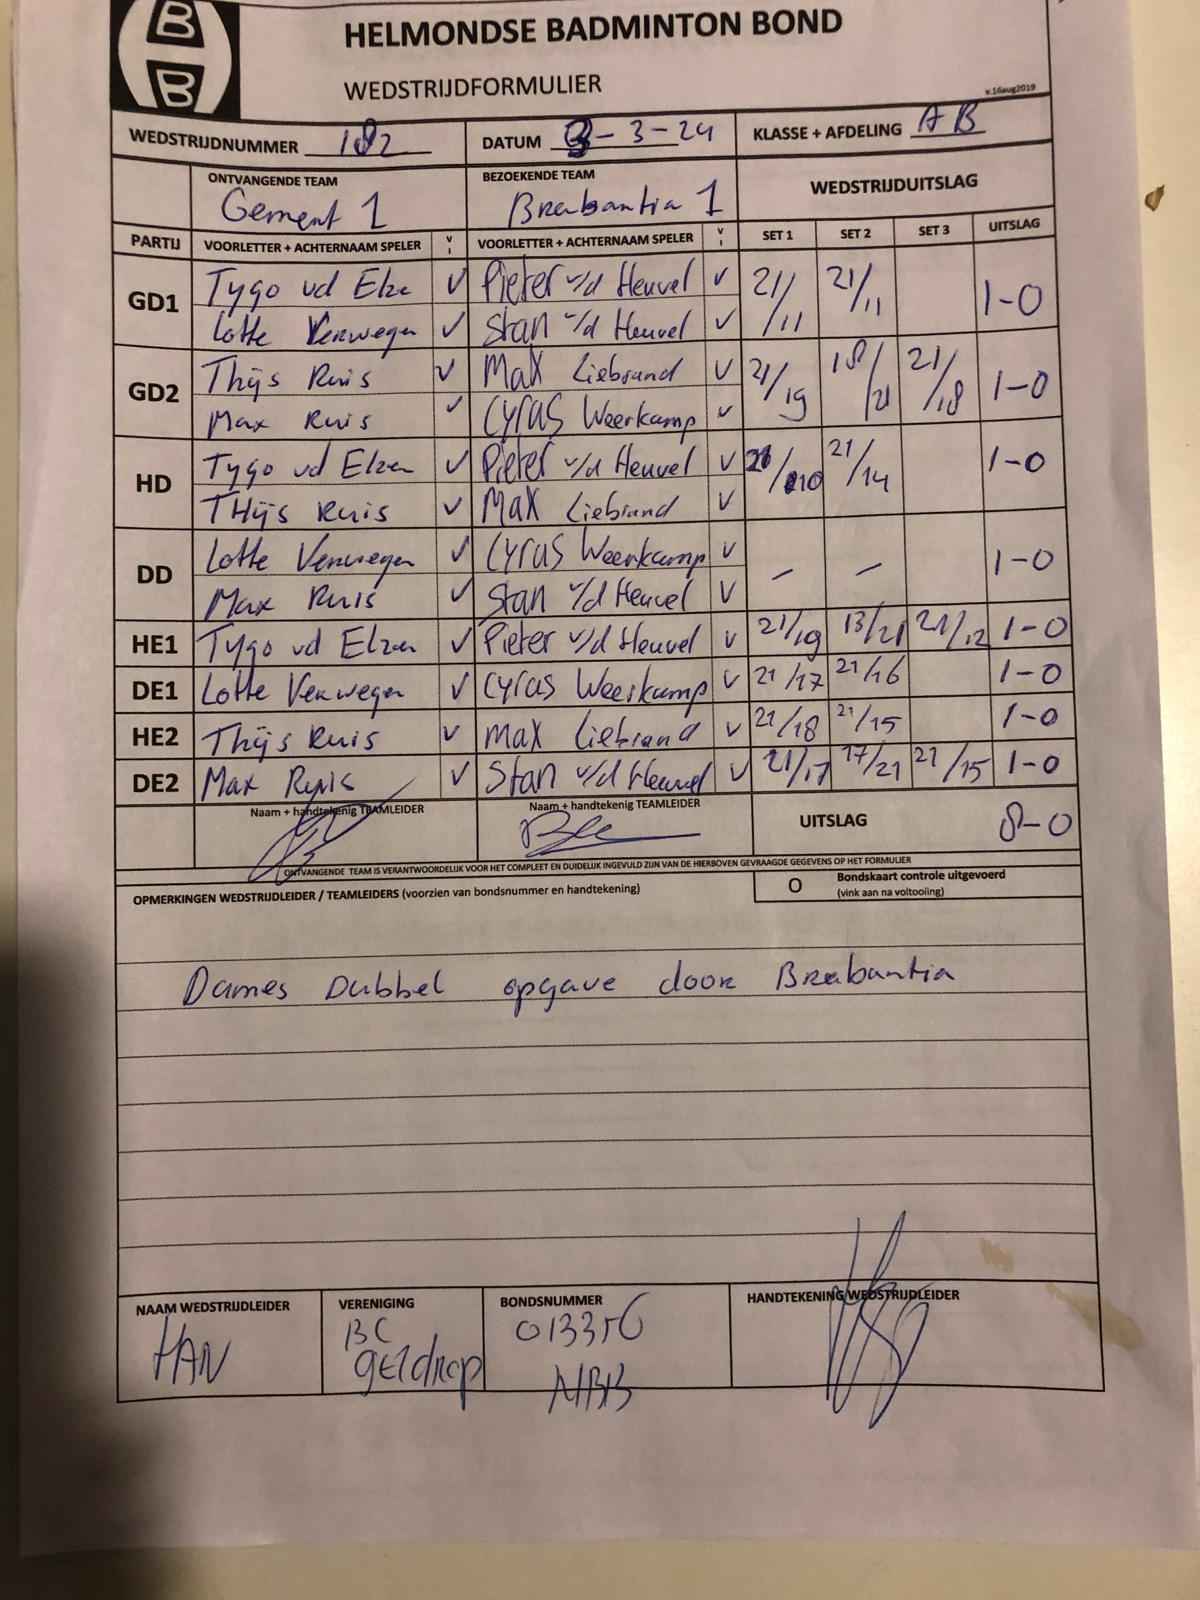 B
B
HELMONDSE BADMINTON BOND
WEDSTRIJDFORMULIER
v.16aug2019
WEDSTRIJDNUMMER 182 DATUM 3-3-24 KLASSE + AFDELING AB
ONTVANGENDE TEAM BEZOEKENDE TEAM WEDSTRIJDUITSLAG
Gement 1 Brabantia 1
PARTIJ VOORLETTER + ACHTERNAAM SPELER V I VOORLETTER + ACHTERNAAM SPELER V I SET 1 SET 2 SET 3 UITSLAG
GD1 Tygo vd Elze V Pieter v/d Heuvel V 21/11 21/11 1-0
Lotte Verwegen V Stan v/d Heuvel V
GD2 Thijs Ruis V Max Liebrand V 21/19 18/21 21/18 1-0
Max Ruis V Cyras Weerkamp V
HD Tygo vd Elzen V Pieter v/d Heuvel V 21/10 21/14 1-0
THijs Ruis V Max Liebrand V
DD Lotte Verwegen V Cyras Weerkamp V - - 1-0
Max Ruis V Stan v/d Heuvel V
HE1 Tygo vd Elzen V Pieter v/d Heuvel V 21/19 13/21 21/12 1-0
DE1 Lotte Verwegen V Cyras Weerkamp V 21/17 21/16 1-0
HE2 Thijs Ruis V Max Liebrand V 21/18 21/15 1-0
DE2 Max Ruis V Stan v/d Heuvel V 21/17 17/21 21/15 1-0
Naam + handtekenig TEAMLEIDER Naam + handtekenig TEAMLEIDER UITSLAG 8-0
ONTVANGENDE TEAM IS VERANTWOORDELIJK VOOR HET COMPLEET EN DUIDELIJK INGEVULD ZIJN VAN DE HIERBOVEN GEVRAAGDE GEGEVENS OP HET FORMULIER
OPMERKINGEN WEDSTRIJDLEIDER / TEAMLEIDERS (voorzien van bondsnummer en handtekening) O Bondskaart controle uitgevoerd
(vink aan na voltooiing)
Dames Dubbel opgave door Brabantia
NAAM WEDSTRIJDLEIDER VERENIGING BONDSNUMMER HANDTEKENING WEDSTRIJDLEIDER
HAN BC 013356
geldrop NBB